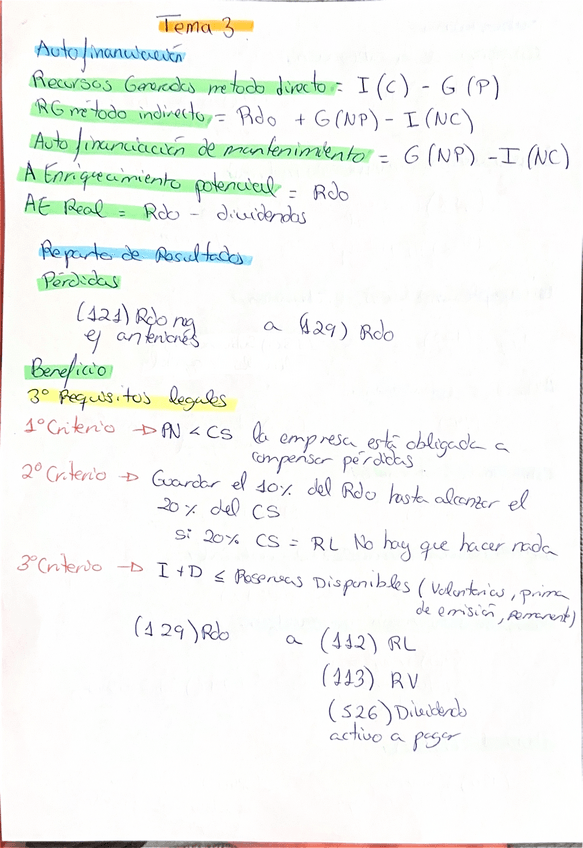 Tema 3
Autofinanciación
Recursos Generados método directo = I (C) - G (P)
RG método indirecto = Rdo + G (NP) - I (NC)
Autofinanciación de mantenimiento = G (NP) - I (NC)
A Enriquecimiento potencial = Rdo
AE Real = Rdo - dividendos
Reparto de Resultados
Pérdidas
(121) Rdo neg a (129) Rdo
ej anteriores
Beneficio
3º Requisitos legales
1º Criterio → PN < CS la empresa está obligada a
compensar pérdidas
2º Criterio → Guardar el 10% del Rdo hasta alcanzar el
20% del CS
si 20% CS = RL No hay que hacer nada
3º Criterio → I + D ≤ Reservas Disponibles (Voluntarias, prima
de emisión, remanente)
(129) Rdo a (112) RL
(113) RV
(526) Dividendo
activo a pagar